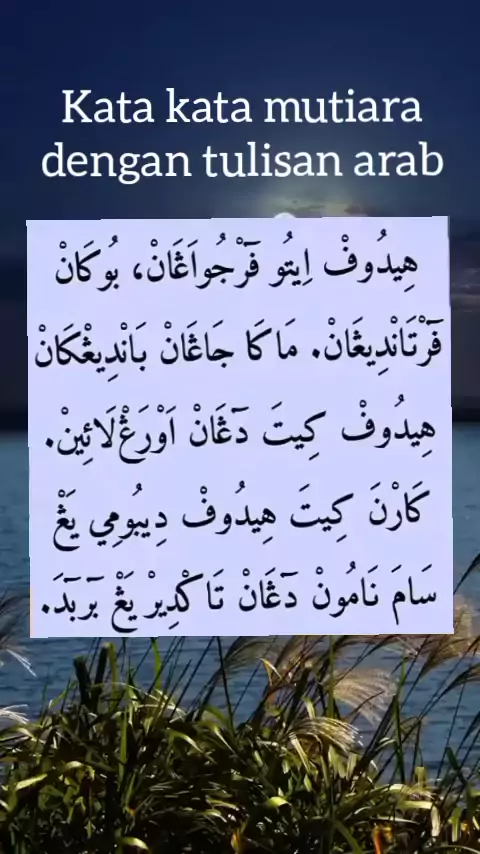 Kata kata mutiara
dengan tulisan arab
هِيدُوفْ اِيتُو فَٓرْجُواَڠَانْ، بُوكَانْ
فَٓرْتَانْدِيڠَانْ. مَاكَا جَاڠَانْ بَانْدِيڠْكَانْ
هِيدُوفْ كِيتَ دَٓڠَانْ اَوْرَڠْ لَائِينْ.
كَارْنَ كِيتَ هِيدُوفْ دِيبُومِي يَڠْ
سَامَ نَامُونْ دَٓڠَانْ تَاكْدِيرْ يَڠْ بَٓربَٓدَ.